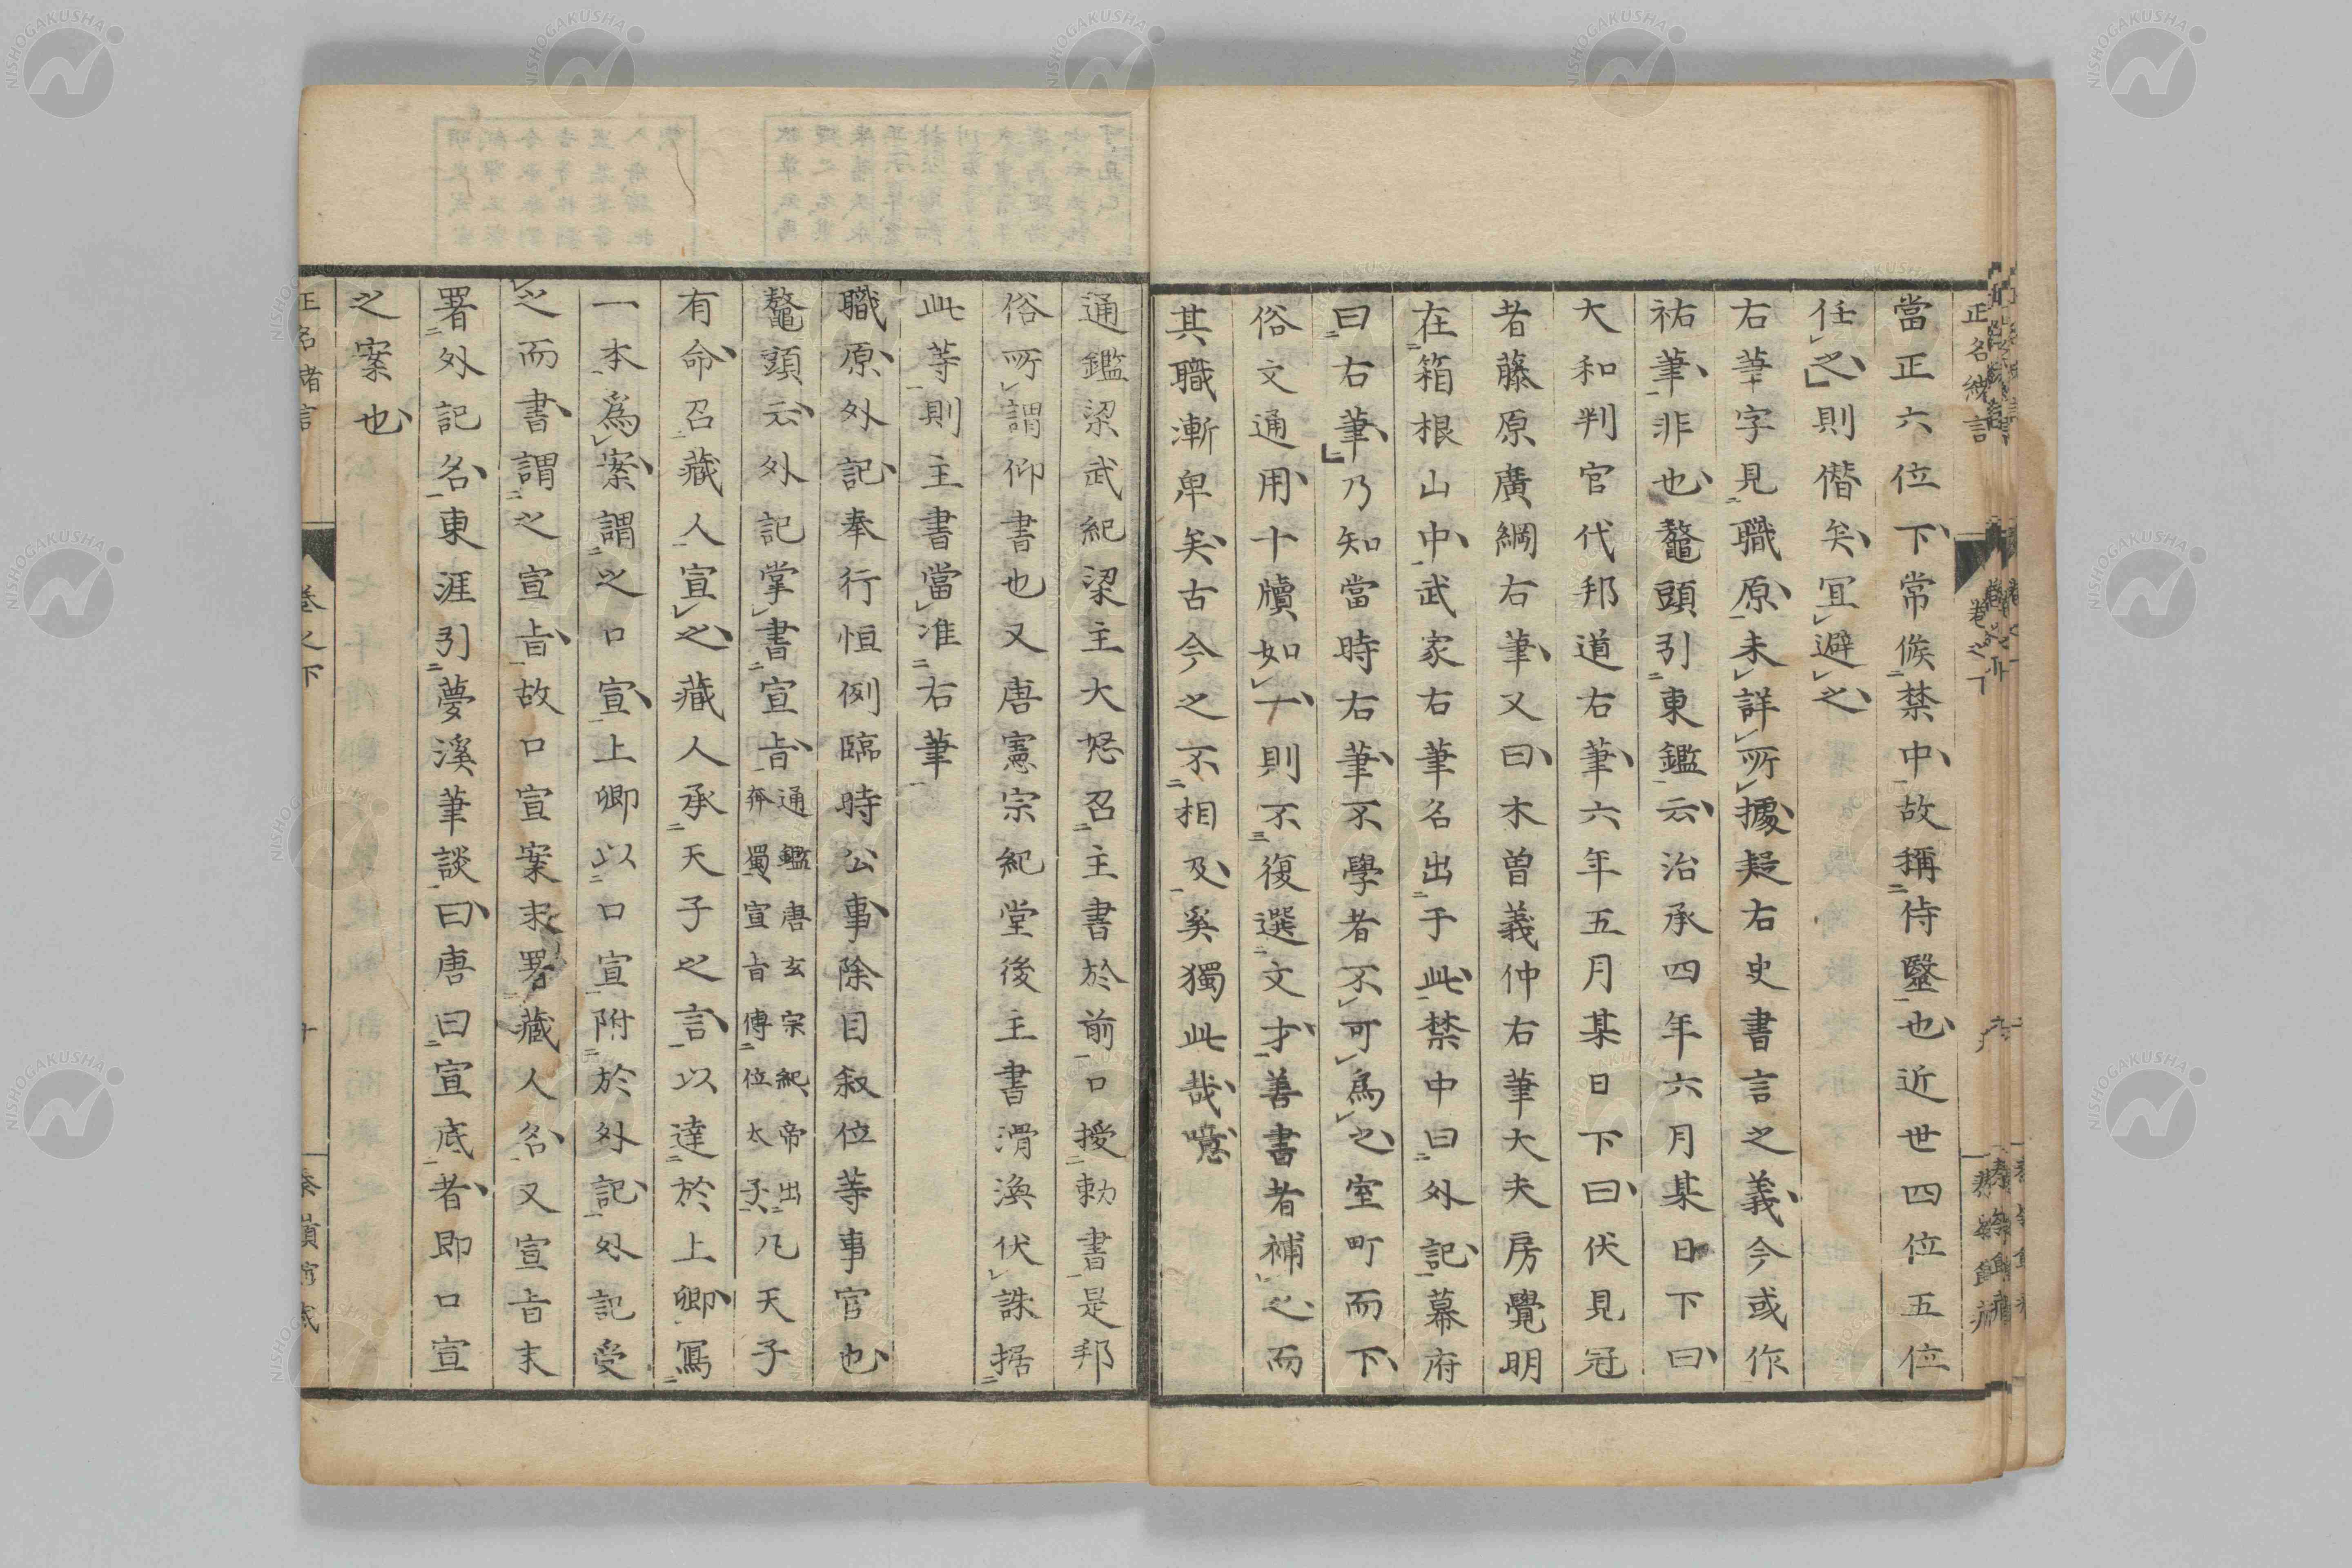 當正六位下常候禁中故稱侍毉也近世四位五位
任之則僭矣冝避之
右筆字見職原未詳所據疑右史書言之義今或作
祐筆非也鼇頭引東鑑云治承四年六月某日下曰
大和判官代邦道右筆六年五月某日下曰伏見冠
者藤原廣綱右筆又曰木曽義仲右筆大夫房覺明
在箱根山中武家右筆名出于此禁中曰外記幕府
曰右筆乃知當時右筆不學者不可爲之室町而下
俗文通用十牘如一則不復選文才善書者補之而
其職漸卑矣古今之不相及奚獨此哉噫
通鑑梁武紀梁主大怒召主書於前口授勅書是邦
俗所謂仰書也又唐憲宗紀堂後主書滑渙伏誅据
此等則主書當准右筆
職原外記奉行恒例臨時公事除目叙位等事官也
鼇頭云外記掌書宣旨通鑑唐玄宗紀帝出奔蜀宣旨傳位太子凡天子
有命召藏人宣之藏人承天子之言以達於上卿寫
一本爲案謂之口宣上卿以口宣附於外記外記受
之而書謂之宣旨故口宣案末署藏人名又宣旨末
署外記名東涯引夢溪筆談曰唐曰宣底者即口宣
之案也
正名緒言
卷之下